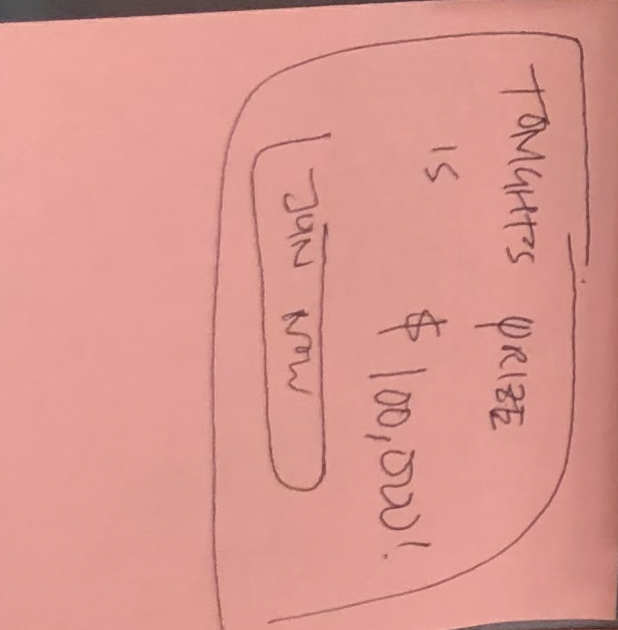 TONIGHT'S PRIZE
IS $100,000!
JOIN NOW